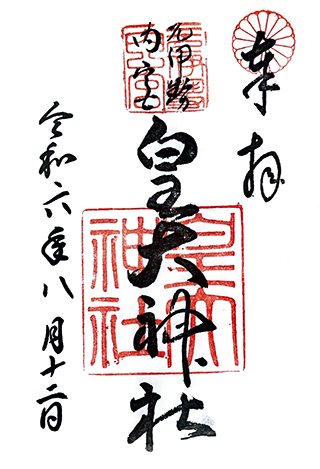 奉拝
元伊勢
内宮
皇大神社
皇大
神社
令和六年八月十二日